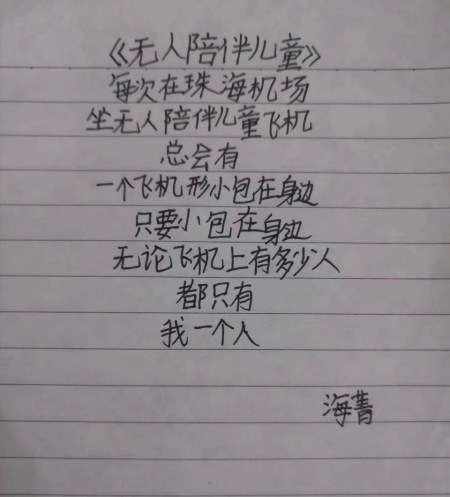 《无人陪伴儿童》
每次在珠海机场
坐无人陪伴儿童飞机
总会有
一个飞机形小包在身边
只要小包在身边
无论飞机上有多少人
都只有
我一个人
海菁